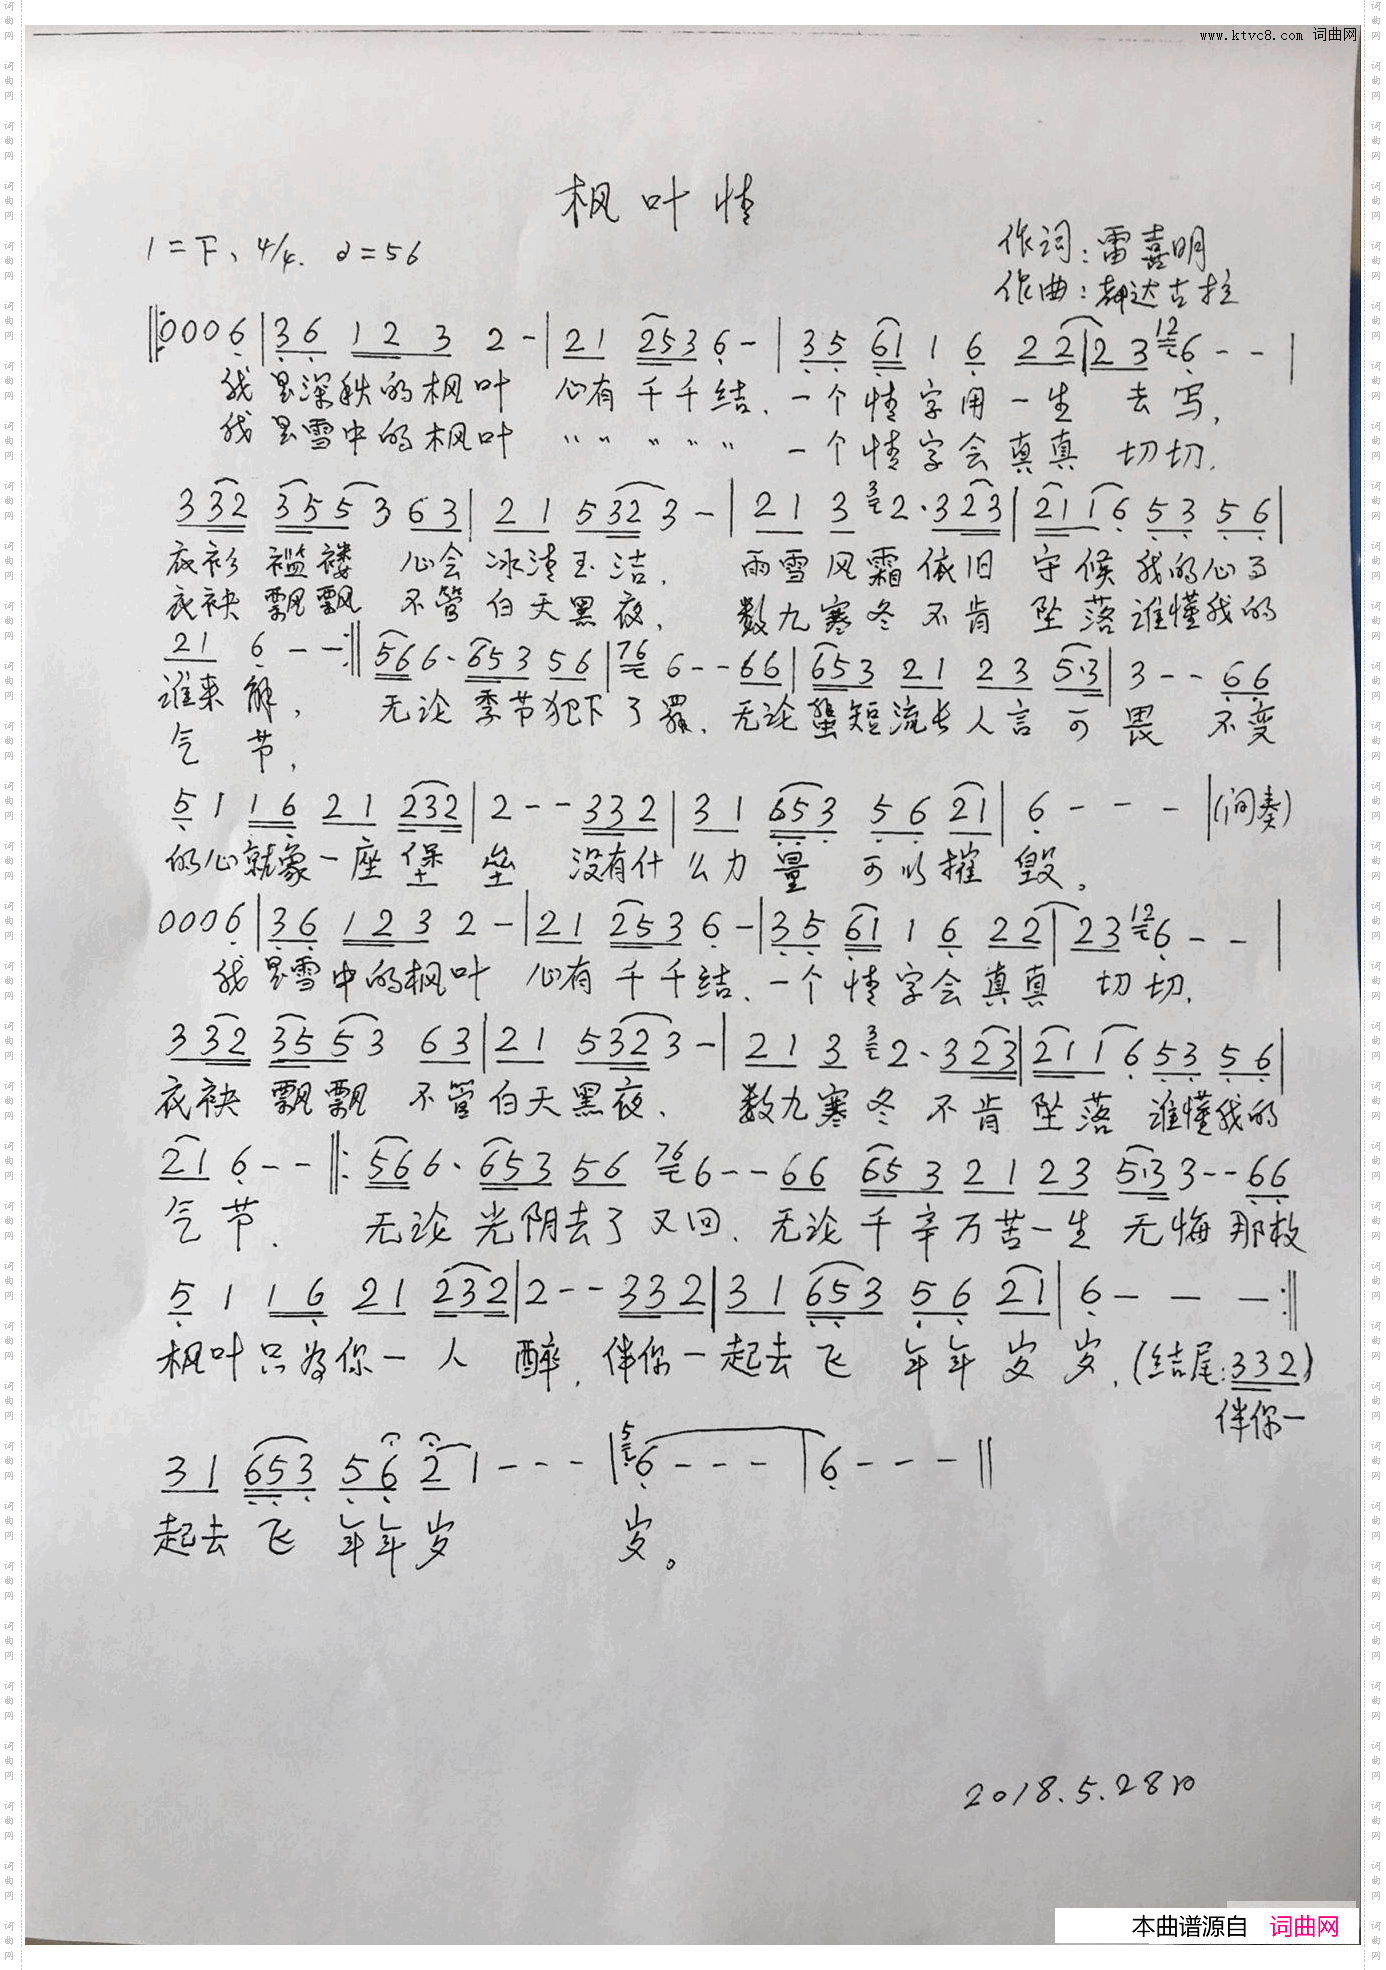 www.ktvc8.com 词曲网
枫叶情
1=F、4/4. ♩=56
作词:雷喜明
作曲:都达古拉
‖:0006|36 123 2-|21 2536-|35 61 1 6 22|23 12 6--|
我是深秋的枫叶 心有千千结、一个情字用一生 去写,
我是雪中的枫叶 〃〃 〃 〃 〃 一个情字会真真 切切.
332 3553 63|21 5323-|21 3 3 2·323|2116 53 56|
衣衫褴褛 心会冰清玉洁. 雨雪风霜依旧 守候我的心事
衣袂飘飘 不管白天黑夜, 数九寒冬不肯 坠落谁懂我的
21 6--:‖566·653 56|76 6--66|653 21 23 5·3|3--66
谁来解, 无论季节犯下了罪.无论蜚短流长人言可畏 不变
气节,
5 1 16 21 232|2--332|31 653 56 21|6---|(间奏)
的心就象一座堡垒 没有什么力量 可以摧毁。
0006|36 123 2-|21 2536-|35 61 1 6 22|23 12 6--|
我是雪中的枫叶 心有千千结、一个情字会真真 切切.
332 3553 63|21 5323-|21 3 3 2·323|2116 53 56|
衣袂飘飘 不管白天黑夜、 数九寒冬 不肯坠落 谁懂我的
21 6--‖:566·653 56 76 6--66 653 21 23 5·3 3--66
气节. 无论光阴去了又回、无论千辛万苦一生无悔那枚
5 1 16 21 232|2--332|31 653 56 21|6---:‖
枫叶只为你一人 醉,伴你一起去飞 年年岁岁.(结尾:332)
伴你一
31 653 56 21---|5 6---|6---‖
起去飞 年年岁 岁。
2018.5.28日
本曲谱源自 词曲网